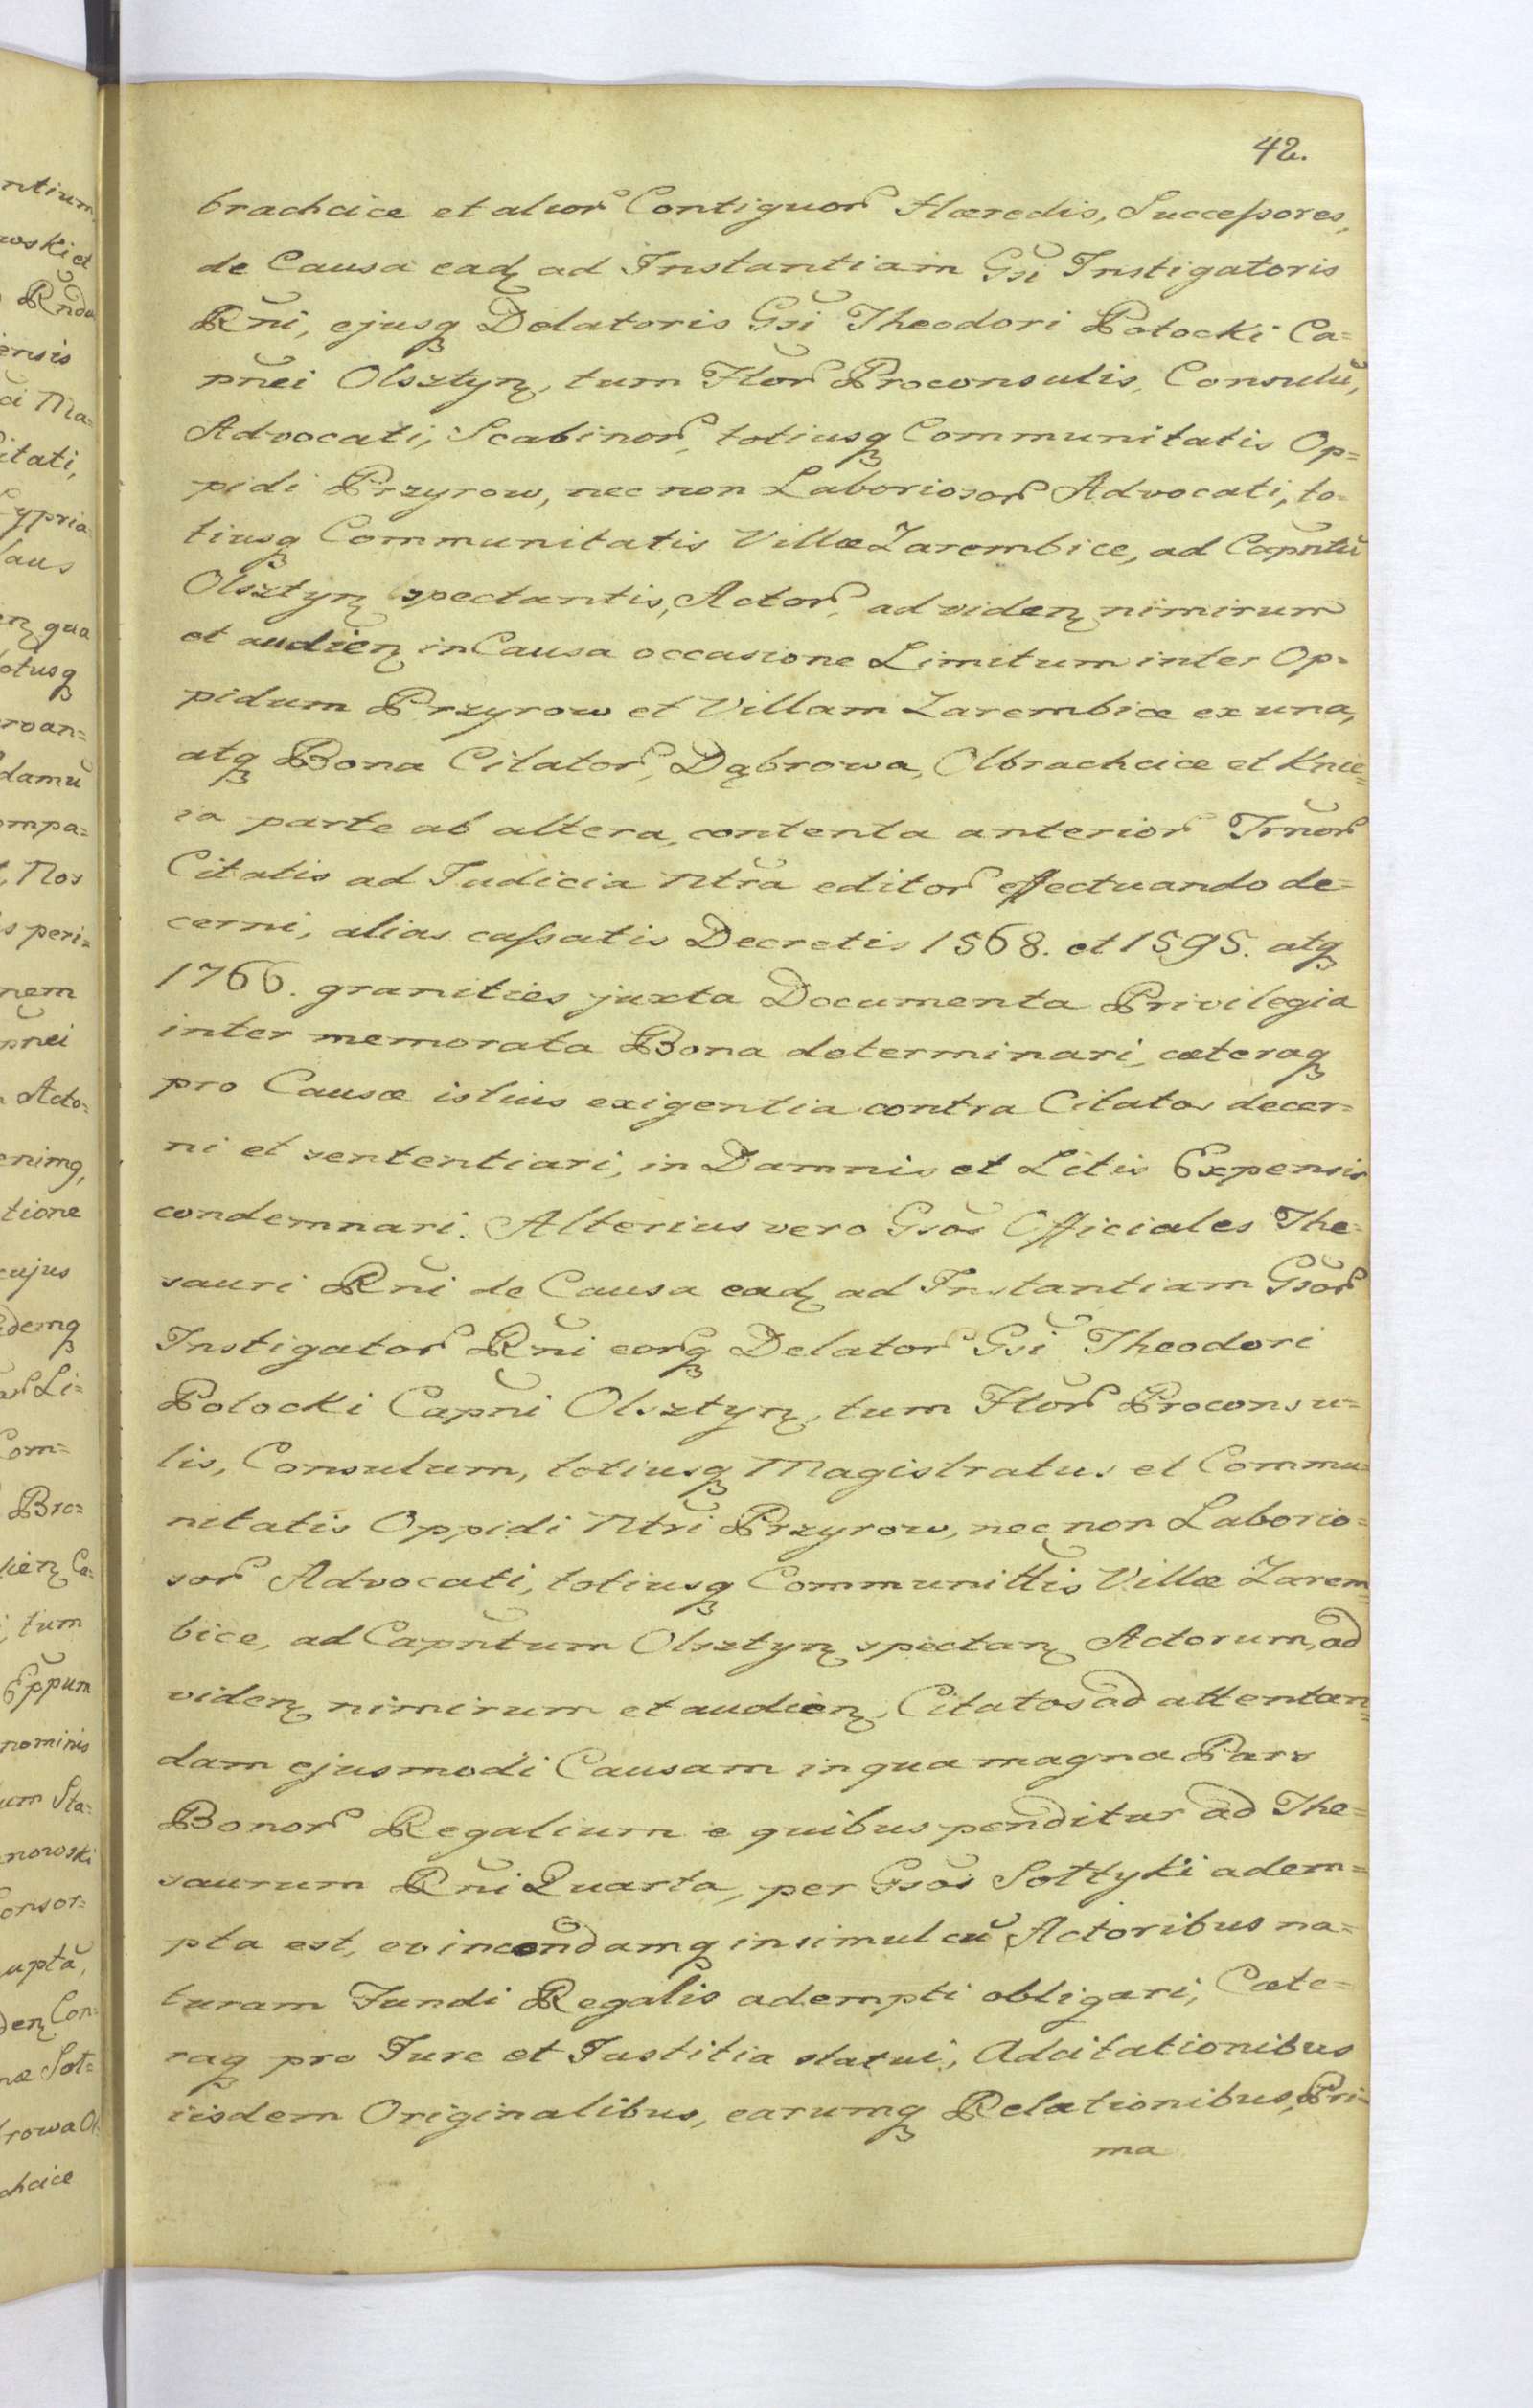 42.
brachcice et alior Contiguor Hæredis, Successores,
de Causa ead ad Instantiam Gsi Instigatoris
Rñi, ejusq Delatoris Gsi Theodori Potocki Ca=
pñei Olsztyn, tum Hor Proconsulis, Consulũ,
Advocati, Scabinor, totiusq Communitatis Op=
pidi Przyrow, nec non Laboriosor Advocati, to=
tiusq Communitatis Villæ Zarembice, ad Capntũ
Olsztyn spectantis, Actor, ad viden nimirum
et audien in Causa occasione Limitum inter Op=
pidum Przyrow et Villam Zarembice ex una,
atq Bona Citator, Dąbrowa, Olbrachcice et Knie=
ia parte ab altera, contenta anterior Trnor
Citatis ad Judicia Ntra editor effectuando de=
cerni, alias cassatis Decretis 1568. et 1595. atq
1766. granities juxta Documenta Privilegia
inter memorata Bona determinari, cæteraq
pro Causæ istius exigentia contra Citatos decer=
ni et sententiari, in Damnis et Litis Expensis
condemnari. Alterius vero Gsos Officiales The=
sauri Rñi de Causa ead ad Instantiam Gsor
Instigator Rñi eorq Delator Gsi Theodori
Potocki Capñi Olsztyn, tum Hor Proconsu=
lis, Consulum, totiusq Magistratus et Commu=
nitatis Oppidi Ntri Przyrow, nec non Laborio=
sor Advocati, totiusq Communittis Villæ Zarem=
bice, ad Capntum Olsztyn spectan Actorum, ad
viden nimirum et audien, Citatos ad attentan=
dam ejusmodi Causam in qua magna Pars
Bonor Regalium e quibus penditur ad The=
saurum Rñi Quarta, per Gsos Sołtyki adem=
pta est, evincendamq insimul cũ Actoribus na=
turam Fundi Regalis adempti obligari, Cæte=
raq pro Jure et Justitia statui, Adcitationibus
iisdem Originalibus, earumq Relationibus, Pri=
ma